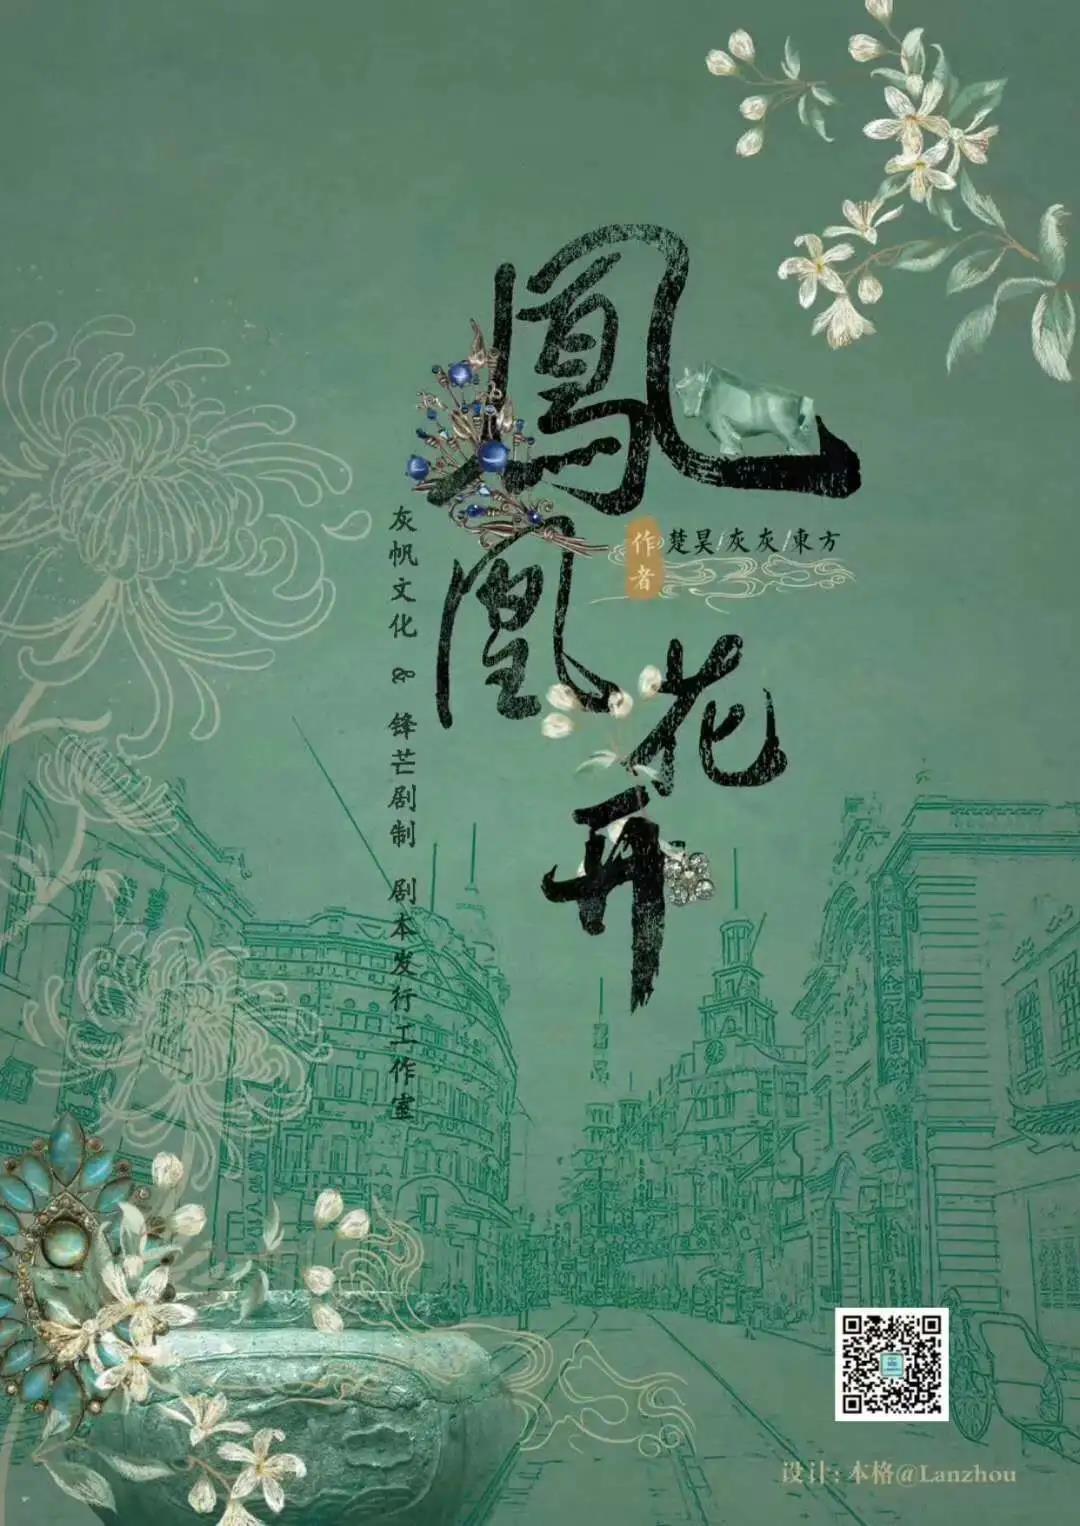 鳳凰花开
作者
楚昊/灰灰/東方
灰帆文化 & 锋芒剧制 剧本发行工作室
设计:本格@Lanzhou